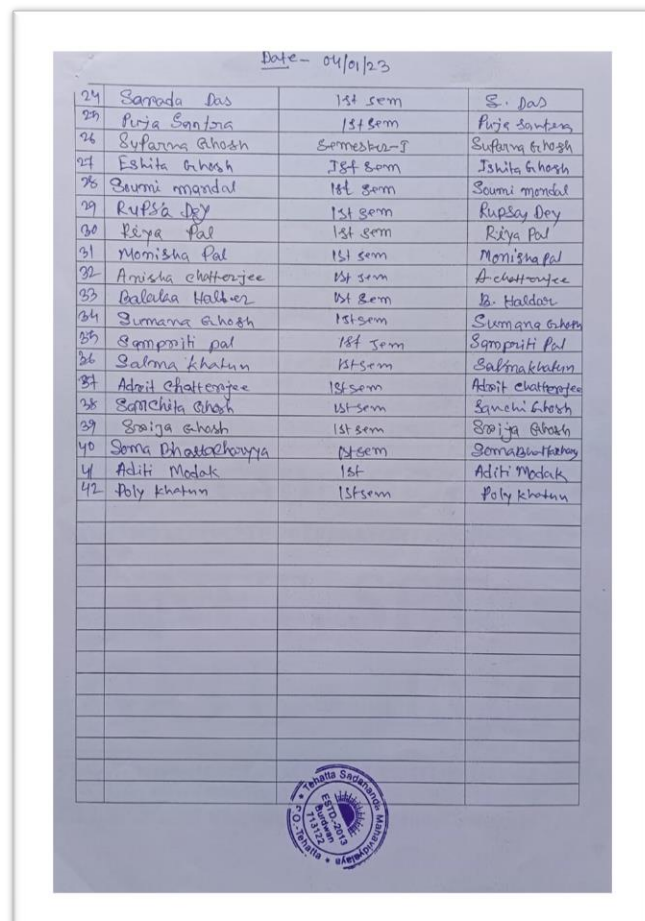 Date - 04/01/23
24 Sarada Das 1st sem S. Das
25 Puja Santra 1st sem Puja Santra
26 Suparna Ghosh Semester-I Suparna Ghosh
27 Eshita Ghosh Ist Sem Ishita Ghosh
28 Soumi mandal 1st sem Soumi mondal
29 Rupsa Dey 1st sem Rupsa Dey
30 Riya Pal 1st sem Riya Pal
31 Monisha Pal 1st sem Monisha Pal
32 Anisha chatterjee 1st sem A. chatterjee
33 Halder 1st sem B. Haldar
34 Sumana Ghosh 1st sem Sumana Ghosh
35 Sampriti pal 1st sem Sampriti Pal
36 Salma khatun 1st sem Salma khatun
37 Adrit Chatterjee 1st sem Adrit Chatterjee
38 Sanchita Ghosh 1st sem Sanchi Ghosh
39 Srija Ghosh 1st sem Srija Ghosh
40 Soma Bhattacharyya 1st sem Soma
41 Aditi Modak 1st Aditi Modak
42 Poly Khatun 1st sem Poly Khatun
Tehatta Sadananda Mahavidyalaya
P.O.-Tehatta
ESTD.-2013
Burdwan
713122